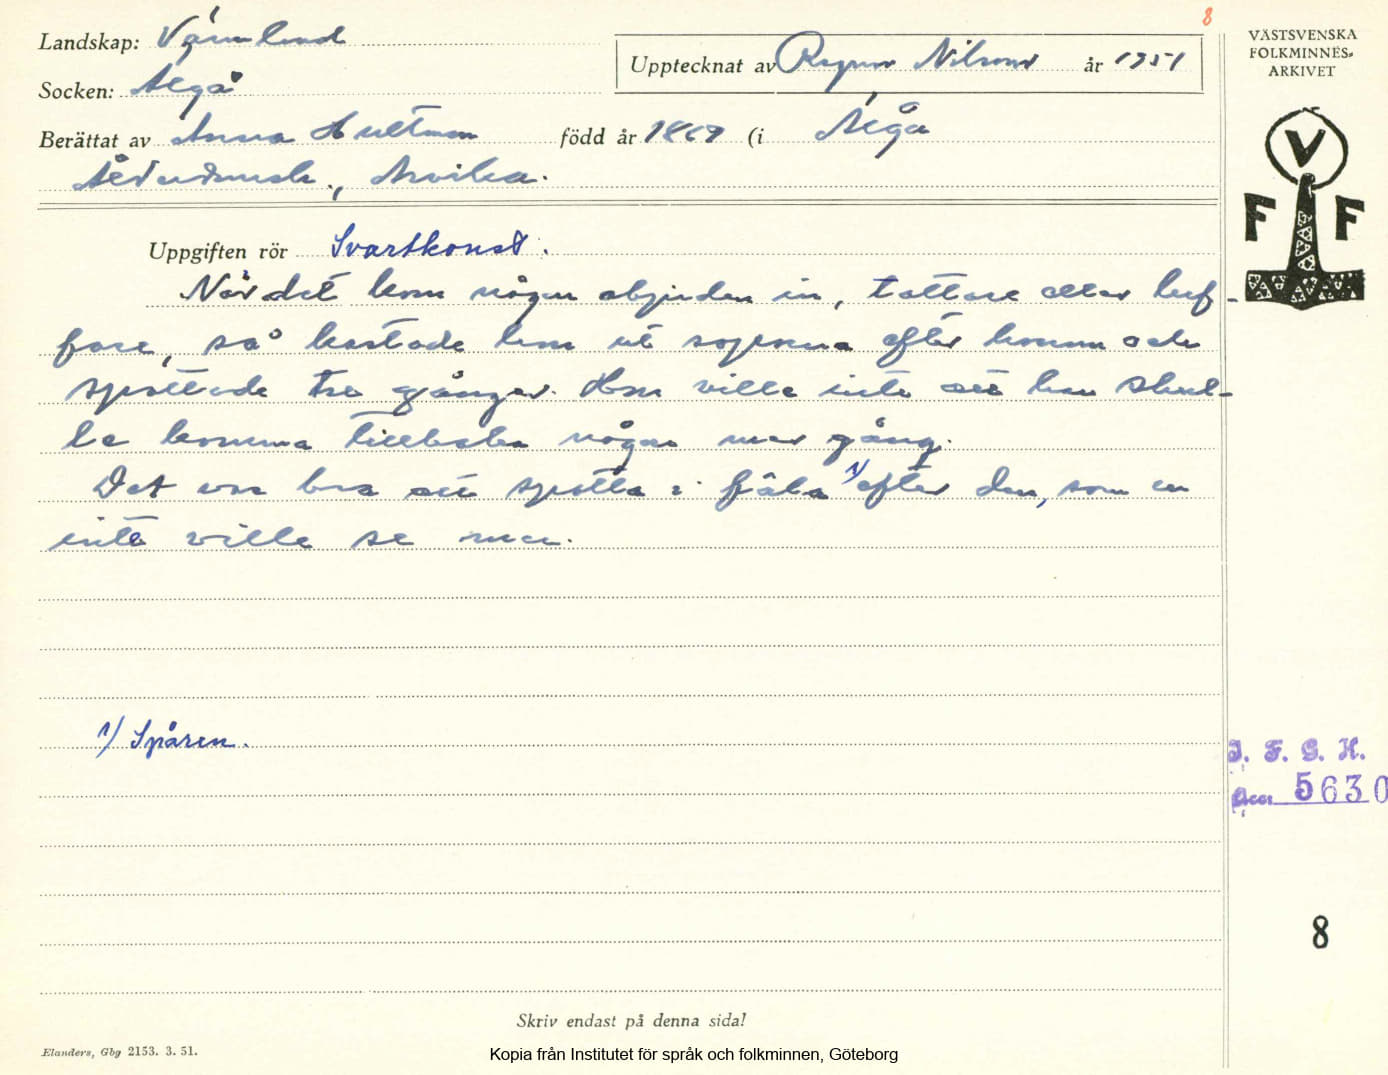 8
Landskap: Värmland
Upptecknat av Ragnar Nilsson år 1951
Socken: Älgå
Berättat av Anna Hultman född år 1869 (i Älgå
Arvika.
Uppgiften rör Svartkonst.
När det kom någon objuden in, tattare eller luf-
fare, så kastade hon ut soporna efter honom och
spottade tre gånger. Hon ville inte att han skul-
le komma tillbaka någon mer gång.
Det var bra att spotta i fäla 1/ efter den, som en
inte ville se mer.
1/ Spåren.
Skriv endast på denna sida!
Elanders, Gbg 2153. 3. 51.
Kopia från Institutet för språk och folkminnen, Göteborg
VÄSTSVENSKA
FOLKMINNES-
ARKIVET
V
F F
I. F. G. H.
Acc. 5630
8